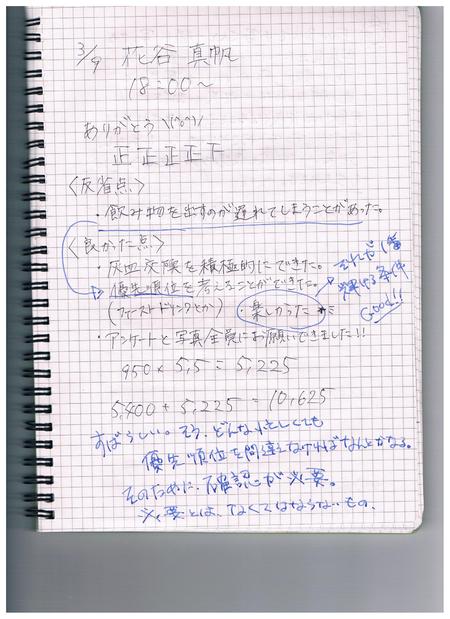 3/9 花谷 真帆
18:00〜
ありがとう \(^o^)/
正正正正下
〈反省点〉
・飲み物を出すのが遅れてしまうことがあった。
〈良かった点〉
・灰皿交換を積極的にできた。
優先順位を考えることができた。
(ファーストドリンクとか)
・楽しかった
それが1番
輝ける条件
Good!!
・アンケートと写真全員にお願いできました!!
950 × 5,5 = 5,225
5,400 + 5,225 = 10,625
すばらしい。そう、どんなに忙しくても
優先順位を間違えなければなんとかなる。
そのために、確認が必要。
必要とは、なくてはならないもの、